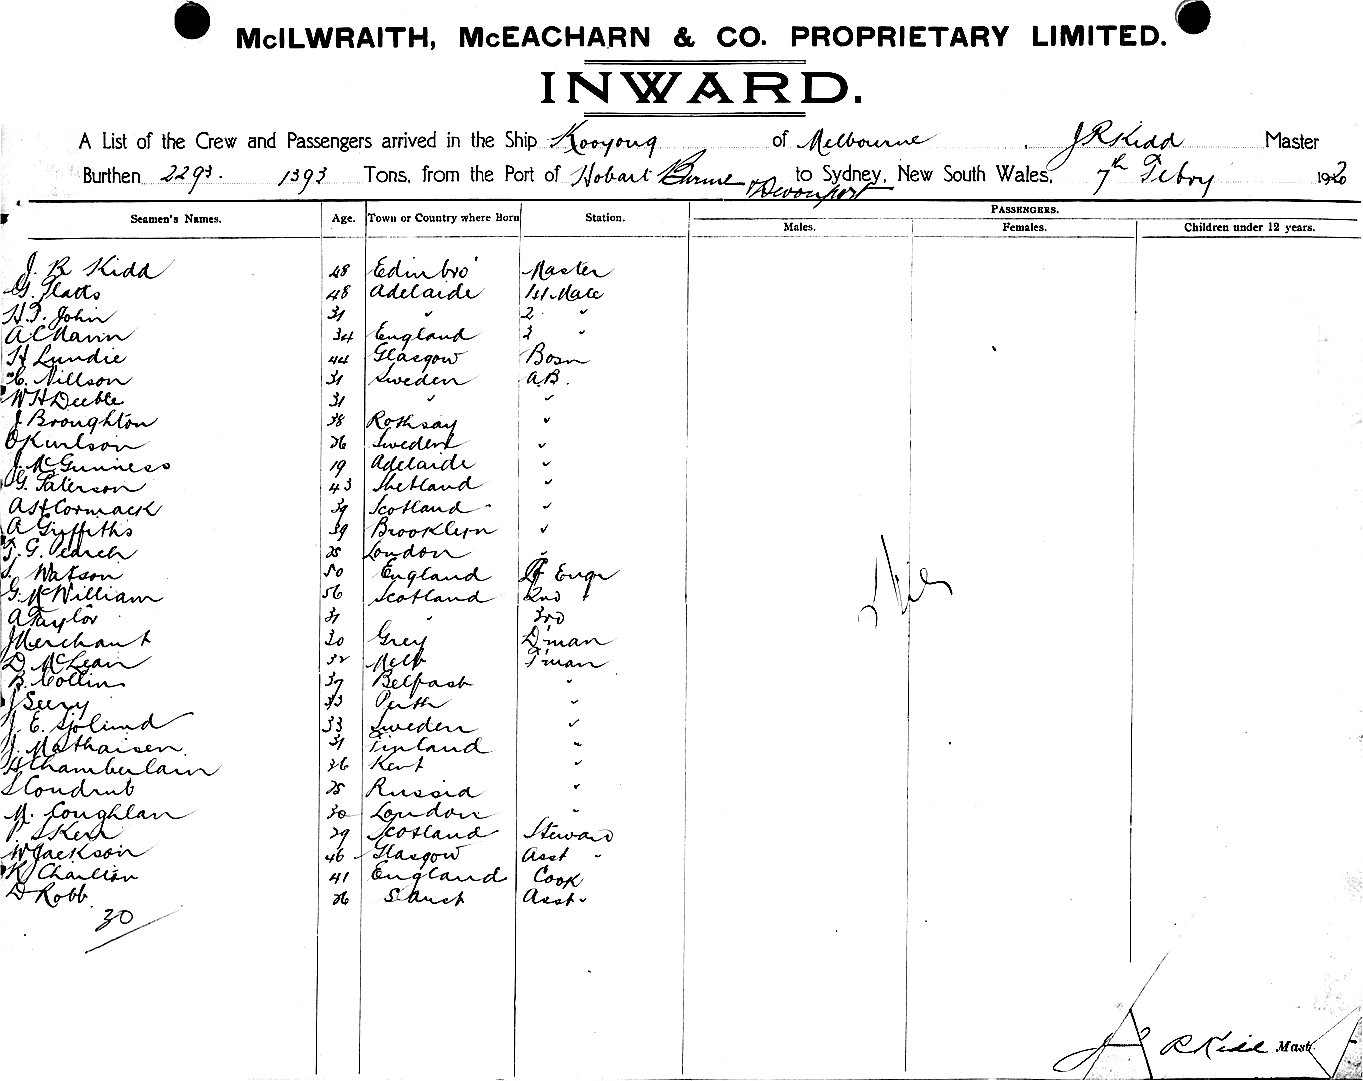 McILWRAITH, McEACHARN & CO. PROPRIETARY LIMITED.
INWARD.
A List of the Crew and Passengers arrived in the Ship Kooyong of Melbourne, J R Kidd Master
Burthen 2293. 1393 Tons, from the Port of Hobart Burnie & Devonport to Sydney, New South Wales, 7th Febry 1920
Seamen's Names. Age. Town or Country where Born Station. PASSENGERS.
Males. Females. Children under 12 years.
J. R Kidd 48 Edinbro' Master
G. Flatts 48 Adelaide 1st Mate
H. F. John 31 " 2 "
A C Mann 34 England 3 "
H Lundie 44 Glasgow Bosn
C. Nillson 31 Sweden A.B.
W H Deeble 31 " "
J Broughton 38 Rothsay "
O Karlson 26 Sweden "
J. McGuinness 19 Adelaide "
G. Paterson 43 Shetland "
A St Cormack 39 Scotland "
A Griffiths 39 Brooklyn "
F. G. Pearch 25 London "
Watson 50 England Engr
G. McWilliam 56 Scotland 2nd
A Taylor 31 " 3rd
J Merchant 30 Grey D'man
D. McLean 32 Melb F'man
B. Collins 37 Belfast "
J Seery 43 Perth "
J. E. Sjolund 33 Sweden "
J. Mathaisen 31 Finland "
H Chamberlain 26 Kent "
S Condrub 25 Russia "
M. Coughlan 30 London "
P. S Kerr 29 Scotland Steward
W Jackson 46 Glasgow Asst "
R Charlton 41 England Cook
D Robb 26 S. Aust Asst "
30
J R Kidd Mast